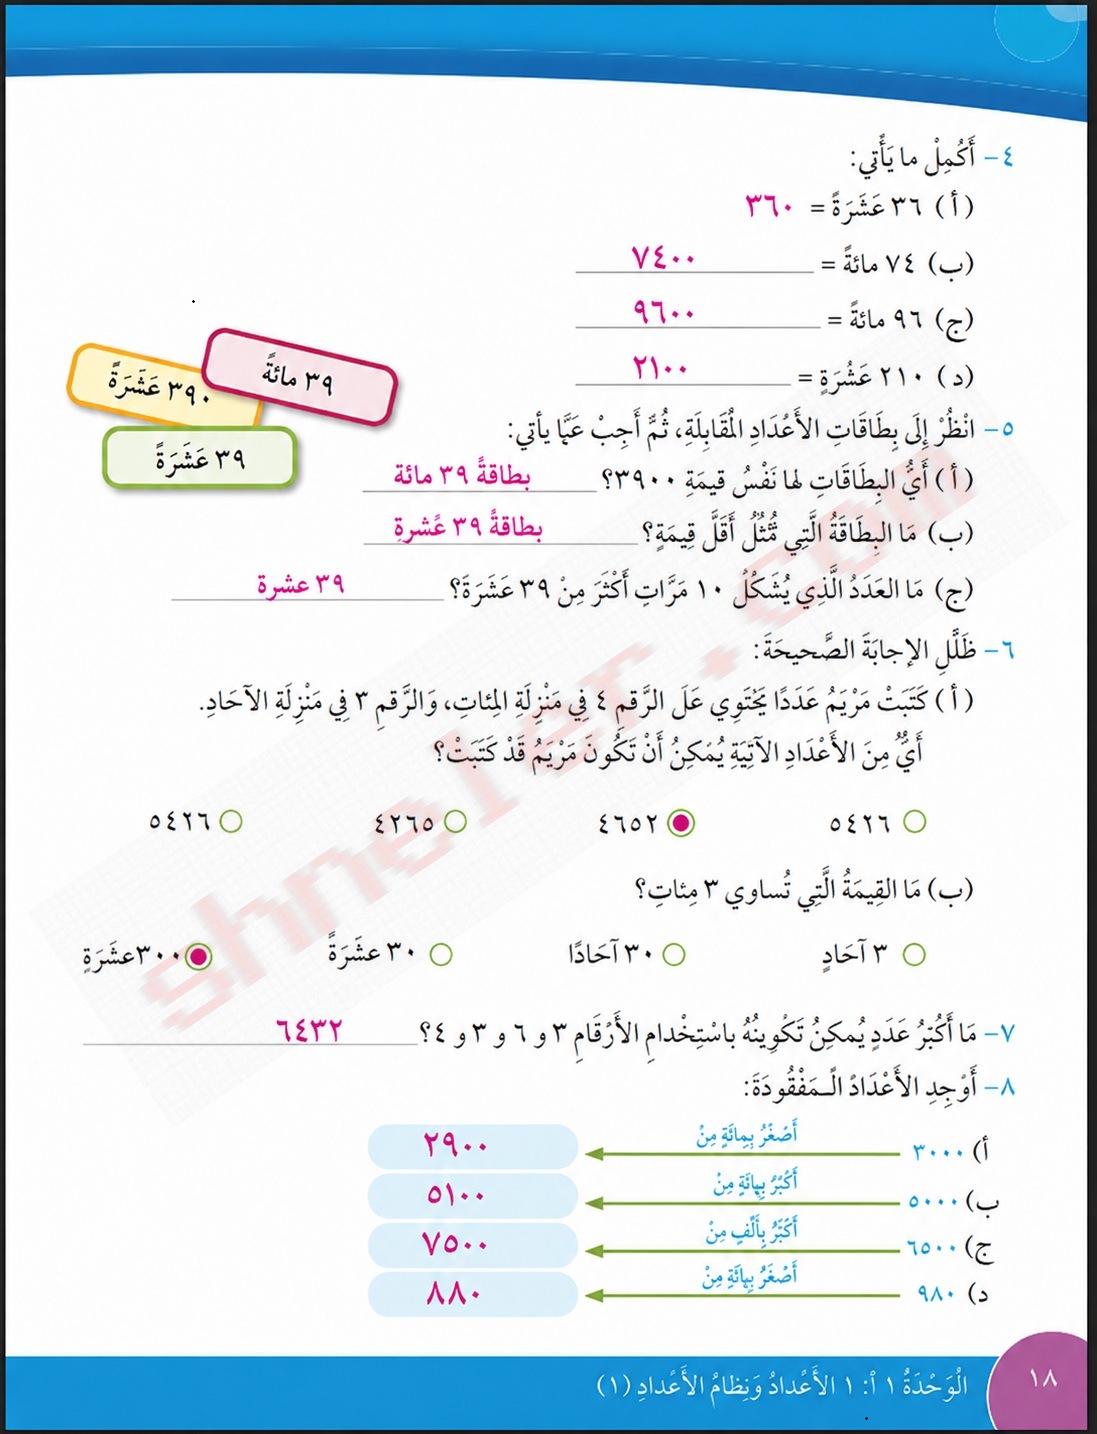 ٤- أَكْمِلْ ما يَأْتي:
(أ) ٣٦ عَشَرَةً = ٣٦٠
(ب) ٧٤ مائةً = ٧٤٠٠
(ج) ٩٦ مائةً = ٩٦٠٠
(د) ٢١٠ عَشْرَةٍ = ٢١٠٠
٣٩ مائةً
٣٩٠ عَشَرَةً
٣٩ عَشَرَةً
٥- انْظُرْ إِلَى بِطَاقَاتِ الأَعْدَادِ المُقَابِلَةِ، ثُمَّ أَجِبْ عَمَّا يأتي:
(أ) أَيُّ البِطَاقَاتِ لها نَفْسُ قيمَةِ ٣٩٠٠؟ بطاقةً ٣٩ مائة
(ب) مَا البِطَاقَةُ الَّتِي تُمَثِّلُ أَقَلَّ قِيمَةٍ؟ بطاقةً ٣٩ عًشرةِ
(ج) مَا العَدَدُ الَّذِي يُشَكِّلُ ١٠ مَرَّاتٍ أَكْثَرَ مِنْ ٣٩ عَشَرَةَ؟ ٣٩ عشرة
٦- ظَلِّلِ الإجابَةَ الصَّحيحَةَ:
(أ) كَتَبَتْ مَرْيَمُ عَدَدًا يَحْتَوِي عَلَى الرَّقمِ ٤ فِي مَنْزِلَةِ المِئاتِ، وَالرَّقمِ ٣ فِي مَنْزِلَةِ الآحَادِ.
أَيٌّ مِنَ الأَعْدَادِ الآتِيَةِ يُمْكِنُ أَنْ تَكُونَ مَرْيَمُ قَدْ كَتَبَتْ؟
٥٤٢٦ ٤٦٥٢ ٤٢٦٥ ٥٤٢٦
(ب) مَا القِيمَةُ الَّتِي تُساوي ٣ مِئاتِ؟
٣ آحَادٍ ٣٠ آحَادًا ٣٠ عشَرَةً ٣٠٠عشَرَةٍ
٧- مَا أَكْبَرُ عَدَدٍ يُمكِنُ تَكْوِينُهُ باسْتِخْدامِ الأَرْقَامِ ٣ و ٦ و ٣ و ٤؟ ٦٤٣٢
٨- أَوْجِدِ الأَعْدَادَ الْـمَفْقُودَةَ:
أ) ٣٠٠٠ أَصْغَرُ بِمِائَةٍ مِنْ ٢٩٠٠
ب) ٥٠٠٠ أَكْبَرُ بِمِائَةٍ مِنْ ٥١٠٠
ج) ٦٥٠٠ أَكْبَرُ بِأَلْفٍ مِنْ ٧٥٠٠
د) ٩٨٠ أَصْغَرُ بِمِائَةٍ مِنْ ٨٨٠
shneler.com
الْوَحْدَةُ ١ أ: ١ الأَعْدادُ وَنِظامُ الأَعْدادِ (١)
١٨